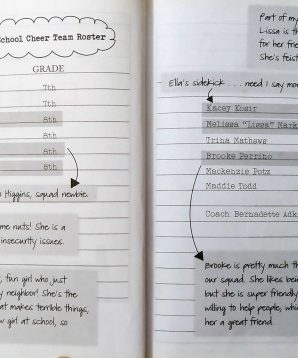 School Cheer Team Roster
GRADE
7th
7th
8th
8th
8th
8th
Higgins, squad newbie.
me nuts! She is a
insecurity issues.
, fun girl who just
y neighbor! She's the
at makes terrible things,
w girl at school, so
Part of my
Lissa is th
for her frie
She's feist
Ella's sidekick . . . need I say mor
Kacey Kosir
Melissa "Lissa" Mark
Trina Mathews
Brooke Perrino
Mackenzie Potz
Maddie Todd
Coach Bernadette Adk
Brooke is pretty much th
our squad. She likes bein
but she is super friendly
willing to help people, whic
her a great friend.